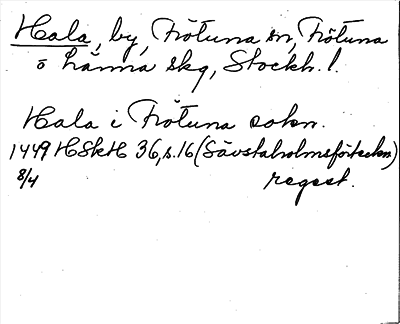 Hala, by, Frötuna sn, Frötuna
o Länna skg, Stockh. l.
Hala i Frötuna sokn.
1449 HSkH 36, s. 16 (Sävstaholmsförteckn)
8/4 regest.